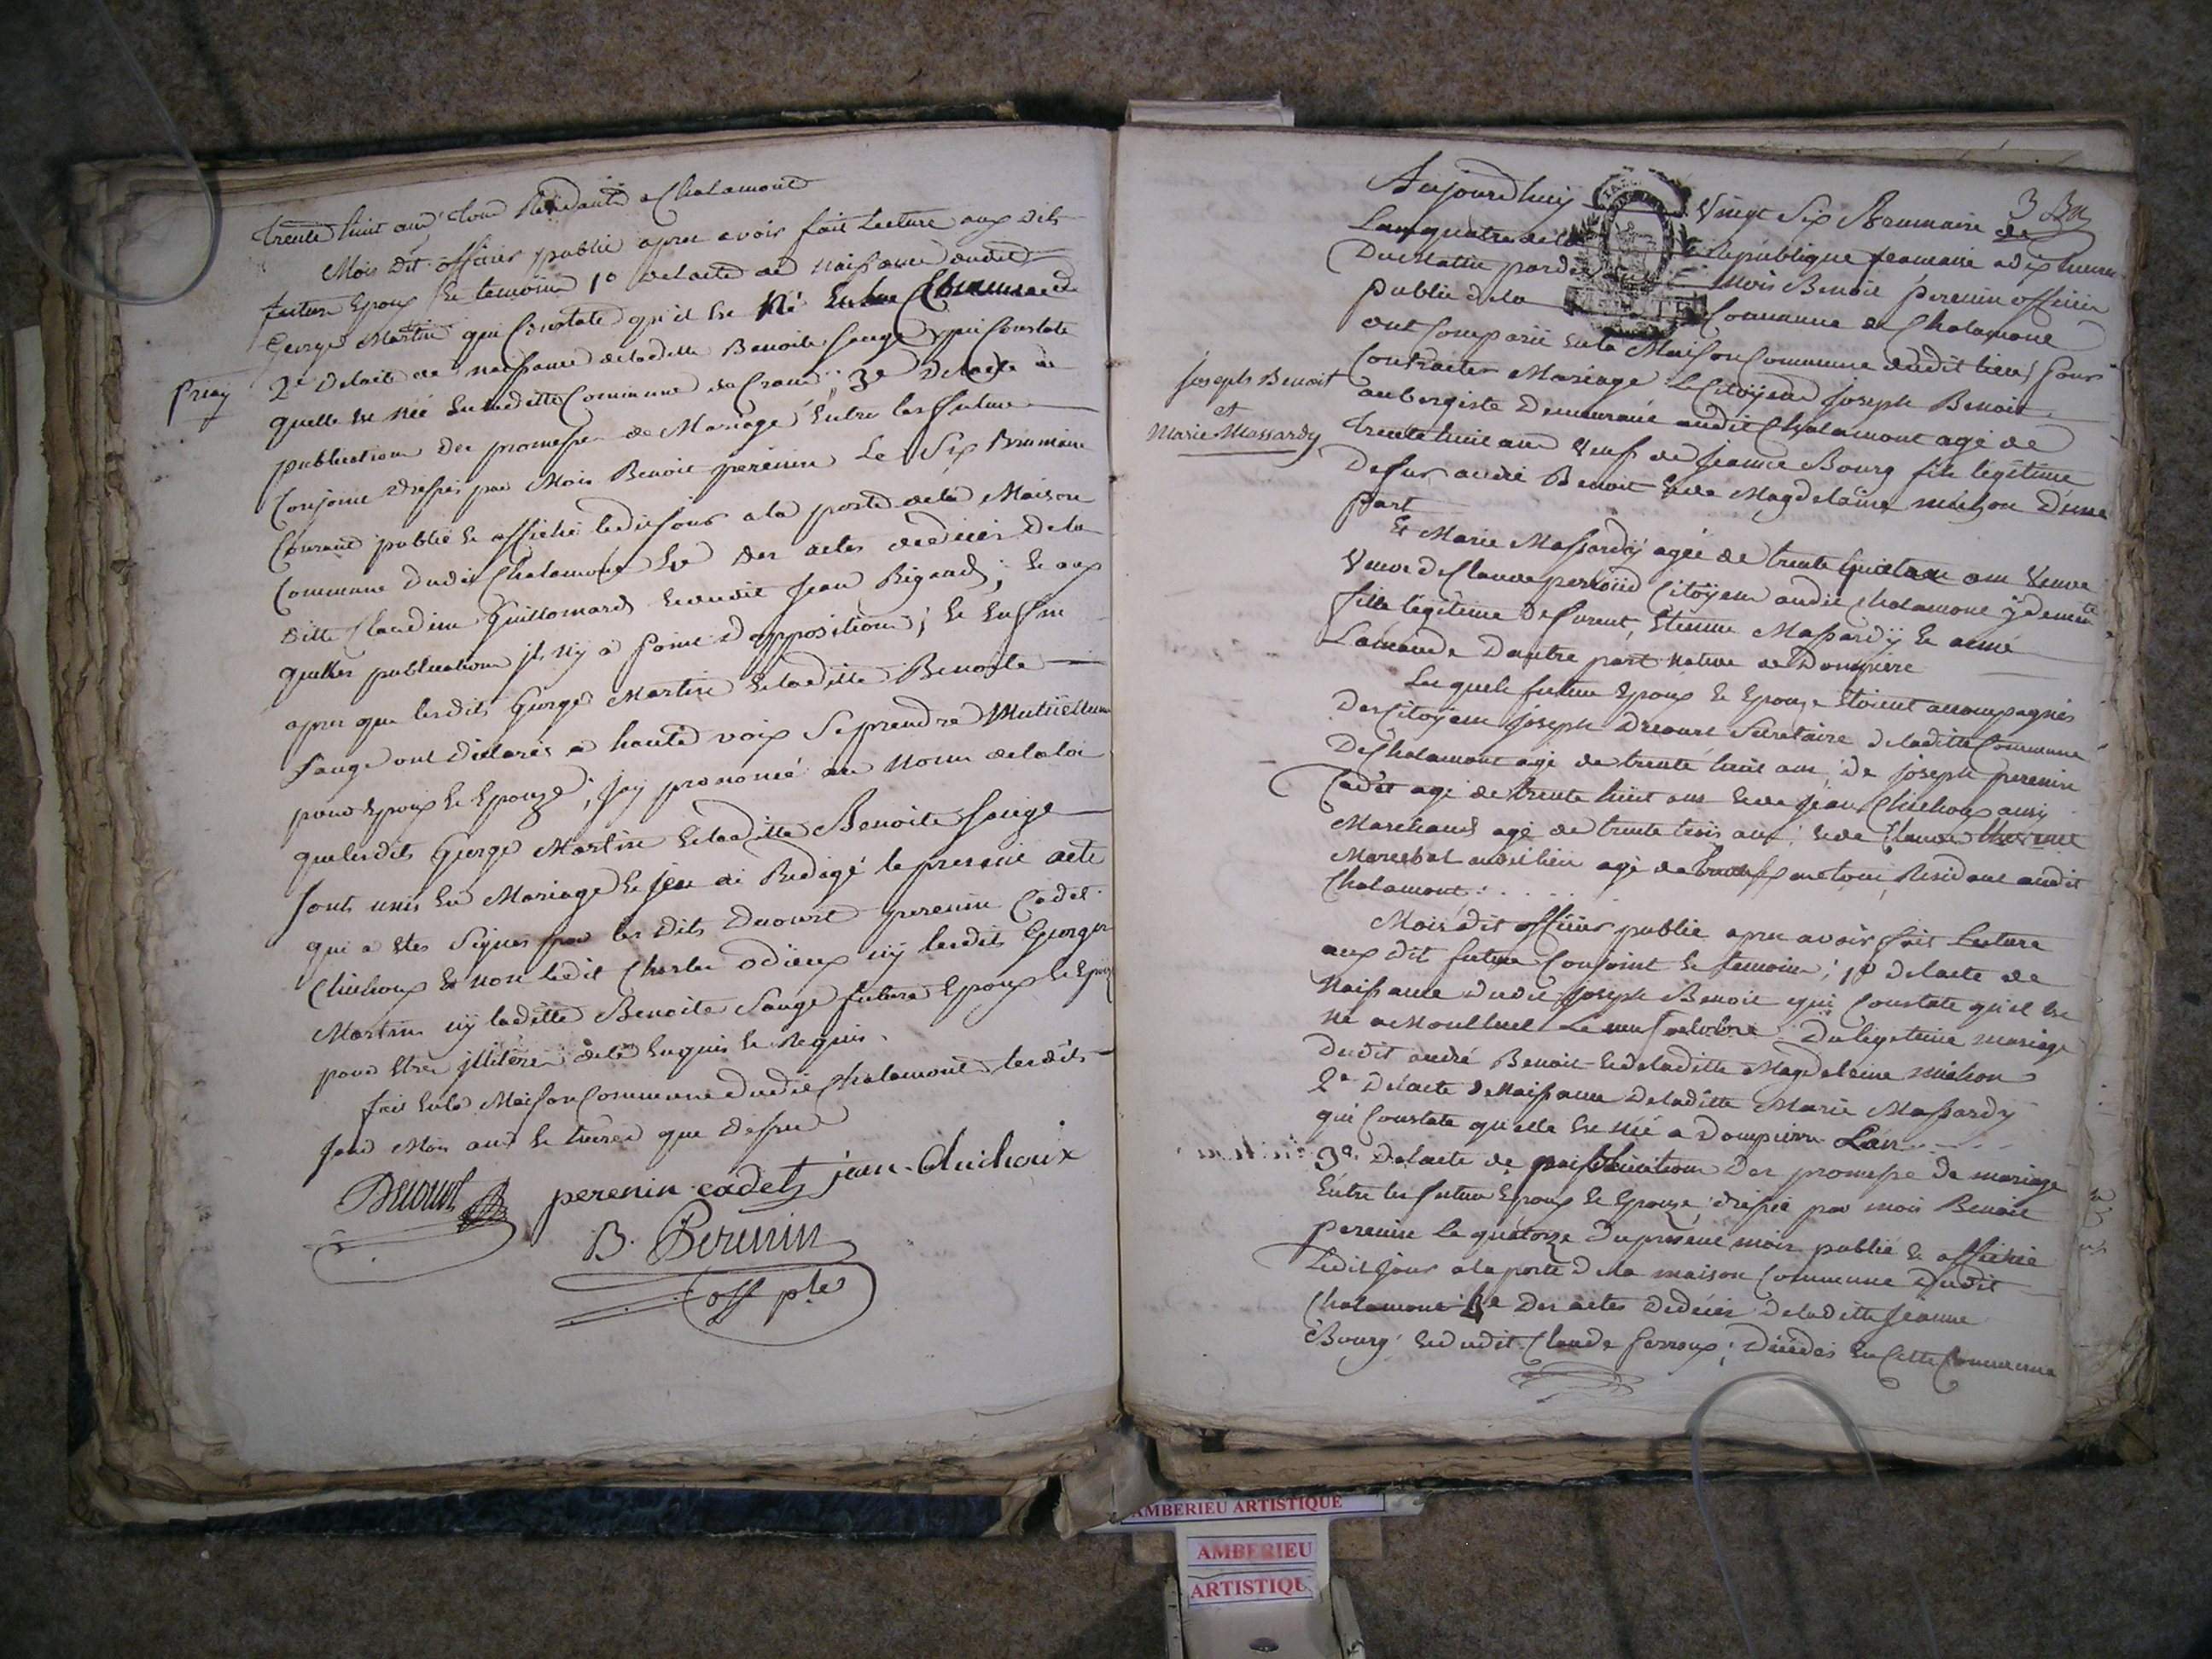 trente huit ans tous Residants a Chalamont
Mois dit officier public apres avoir fait Lecture aux dits
futurs Epoux Et temoins 1o de lacte de naissance dudit
George Martin qui Constate qu'il Est Né
Priay
2e Delacte de naissance de ladite Benoite Sange qui Constate
quelle Est née En ladite Commune de Crans; 3e De lacte de
publication des promesses de Mariage Entre les futurs
Conjoint dressés par Mois Benoit perenin Le Six Brumaire
Courant publié Et affiché ledit jour a la porte de la Maison
Commune dudit Chalamont des actes dédécés De la
ditte Claudine Guillomard Et dudit Jean Rigaud; Et aux
quelles publications il ny a point dopposition; Et Enfin
apres que lesdits George Martin Et laditte Benoite
Sange ont déclarés a haute voix Se prendre Mutuellement
pour Epoux Et Epouze; jay prononcé au Nom de la loi
que lesdits George Martin Et laditte Benoite Sange
sont unis En Mariage Et jen ai Redigé le present acte
qui a Etes Signer par les Dits Ducourt perenin Cadet
Chichoux Et non ledit Charles Odieux ny lesdits George
Martin ny laditte Benoite Sange futurs Epoux Et Epouze
pour Etre illiteré de ce Enquis Et Requis.
fait En la Maison Commune dudit Chalamont lesdits
Jour Mois and Et heures que dessus
perenin cadet jean Chichoux
B. Perenin
off ple
Aujourdhuy Vingt Six Brumaire de
Lan quatre de la République francaise a dix heures
Du Matin par devant Mois Benoit perenin officier
Public de la Commune de Chalamont
ont Comparu En la Maison Commune dudit lieu pour
Joseph Benoit
et
Marie Massardy
Contracter Mariage Le Citoyen Joseph Benoit
aubergiste Demeurant audit Chalamont agé de
trente huit ans Veuf de Jeanne Bourg fils légitime
Defunt andré Benoit Et de Magdelaine michon D'une
part
Et Marie Massardy agée de trente quatre ans Veuve
Veuve de Claude Citoyen audit Chalamont y demeurante
fille légitime Defunt, Etienne Massardy Et aimé
Lamande Dautre part Native de Dompierre
Lesquels futurs Epoux Et Epouze Etoient accompagnés
Des Citoyens Joseph Ducourt Secretaire de laditte Commune
De Chalamont agé de trente huit ans, De Joseph perenin
Cadet agé de trente huit ans Et de Jean Chichoux aussi
Marchand agé de trente trois ans; Et de Claude
Marechal audit lieu agé de tous Residant audit
Chalamont
Mois dit officier public apres avoir fait Lecture
aux dit futurs Conjoint Et temoins; 1o de lacte de
Naissance dudit Joseph Benoit qui Constate qu'il Est
Né a Montluel Le neuf octobre Du legitime mariage
Dudit andré Benoit Et de laditte Magdelaine michon
2e De lacte de Naissance De laditte Marie Massardy
qui Constate quelle Est née a Dompierre Lan
3e De lacte de publication Des promesse De mariage
Entre les futurs Epoux Et Epouze, dressé par mois Benoit
Perenin le quatorze Du present mois publié Et affiché
Ledit jour a la porte De la maison Commune Dudit
Chalamont 4e Des actes Dedécés De laditte Jeanne
Bourg Et dudit Claude perroux; Décédés En Cette Commune
AMBERIEU ARTISTIQUE
AMBERIEU
ARTISTIQU